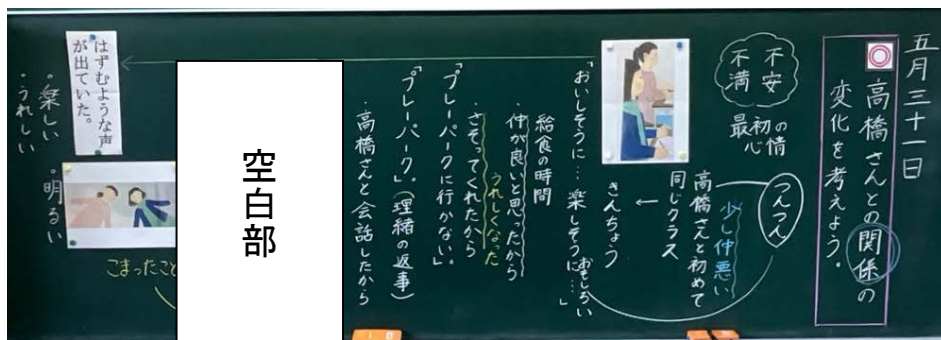 五月三十一日
◎高橋さんとの関係の
変化を考えよう。
不安
不満
最初の
心情
つんつん
少し仲悪い
高橋さんと初めて
同じクラス
←
きんちょう
おもしろい
「おいしそうに…楽しそうに…」
給食の時間
仲が良いと思ったから
うれしくなった
・さそってくれたから
「プレーパークに行かない。」
「プレーパーク。」(理緒の返事)
・高橋さんと会話したから
空白部
こまったこと
はずむような声
が出ていた。
・明るい
・楽しい
・うれしい